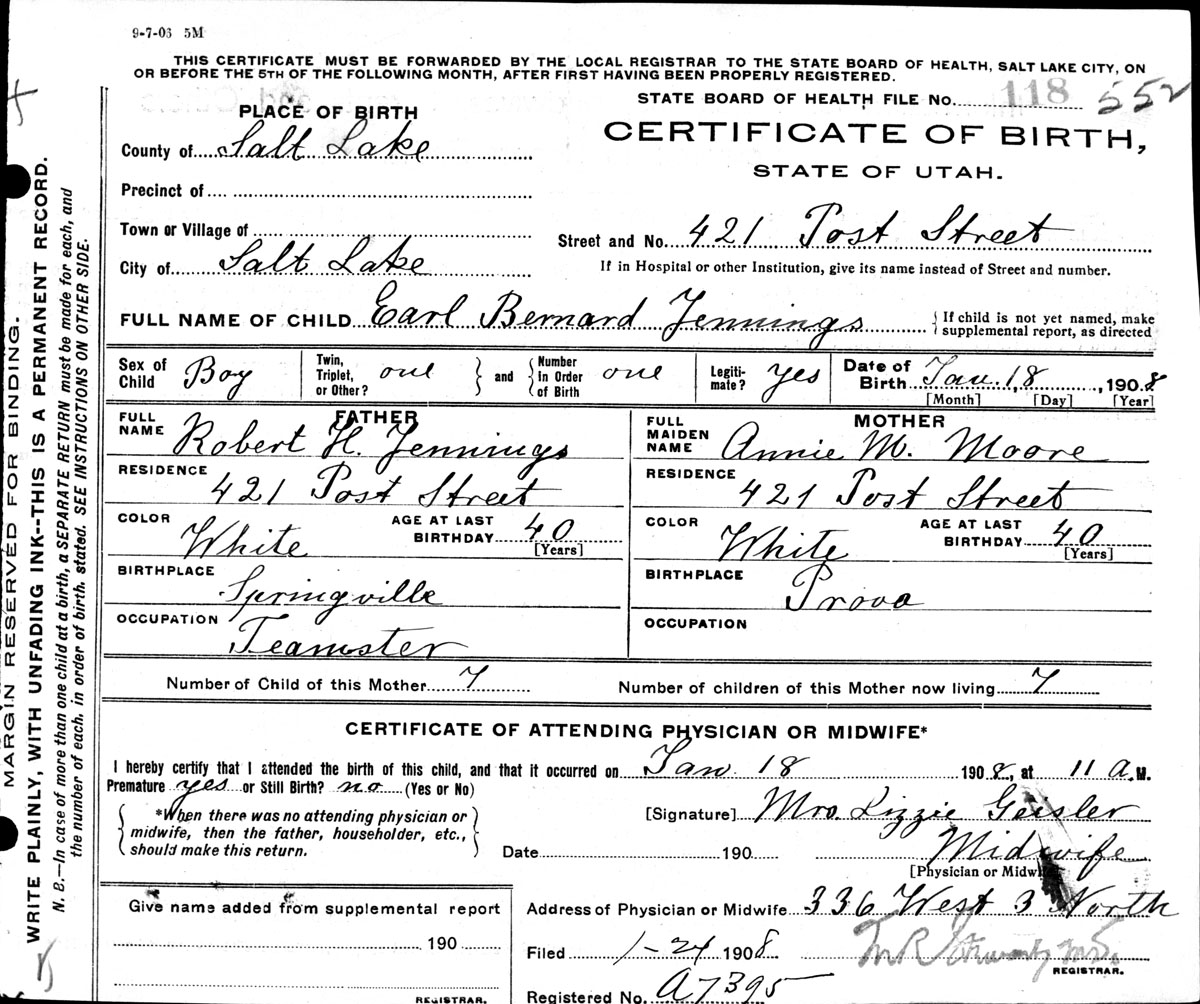 9-7-06 5M
THIS CERTIFICATE MUST BE FORWARDED BY THE LOCAL REGISTRAR TO THE STATE BOARD OF HEALTH, SALT LAKE CITY, ON
OR BEFORE THE 5TH OF THE FOLLOWING MONTH, AFTER FIRST HAVING BEEN PROPERLY REGISTERED.
STATE BOARD OF HEALTH FILE No. 118 552
PLACE OF BIRTH
CERTIFICATE OF BIRTH,
STATE OF UTAH.
County of Salt Lake
Precinct of
Town or Village of
City of Salt Lake
Street and No. 421 Post Street
If in Hospital or other Institution, give its name instead of Street and number.
FULL NAME OF CHILD Earl Bernard Jennings
{ If child is not yet named, make
supplemental report, as directed
Sex of Child Boy
Twin, Triplet, or Other? one } and { Number in Order of Birth one
Legiti-mate? yes
Date of Birth Jan. 18, 1908
[Month] [Day] [Year]
FATHER
FULL NAME Robert H. Jennings
RESIDENCE 421 Post Street
COLOR White
AGE AT LAST BIRTHDAY 40
[Years]
BIRTHPLACE Springville
OCCUPATION Teamster
MOTHER
FULL MAIDEN NAME Annie M. Moore
RESIDENCE 421 Post Street
COLOR White
AGE AT LAST BIRTHDAY 40
[Years]
BIRTHPLACE Provo
OCCUPATION
Number of Child of this Mother 7
Number of children of this Mother now living 7
CERTIFICATE OF ATTENDING PHYSICIAN OR MIDWIFE*
I hereby certify that I attended the birth of this child, and that it occurred on Jan. 18 1908, at 11 A.M.
Premature yes or Still Birth? no (Yes or No)
{ *When there was no attending physician or
midwife, then the father, householder, etc.,
should make this return. }
[Signature] Mrs. Lizzie Geisler
Date 190 Midwife
[Physician or Midwife
Give name added from supplemental report
190
REGISTRAR.
Address of Physician or Midwife 336 West 3 North
Filed 1-24 1908
REGISTRAR.
Registered No. A7395
MARGIN RESERVED FOR BINDING.
WRITE PLAINLY, WITH UNFADING INK--THIS IS A PERMANENT RECORD.
N. B.--In case of more than one child at a birth, a SEPARATE RETURN must be made for each, and
the number of each, in order of birth, stated. SEE INSTRUCTIONS ON OTHER SIDE.